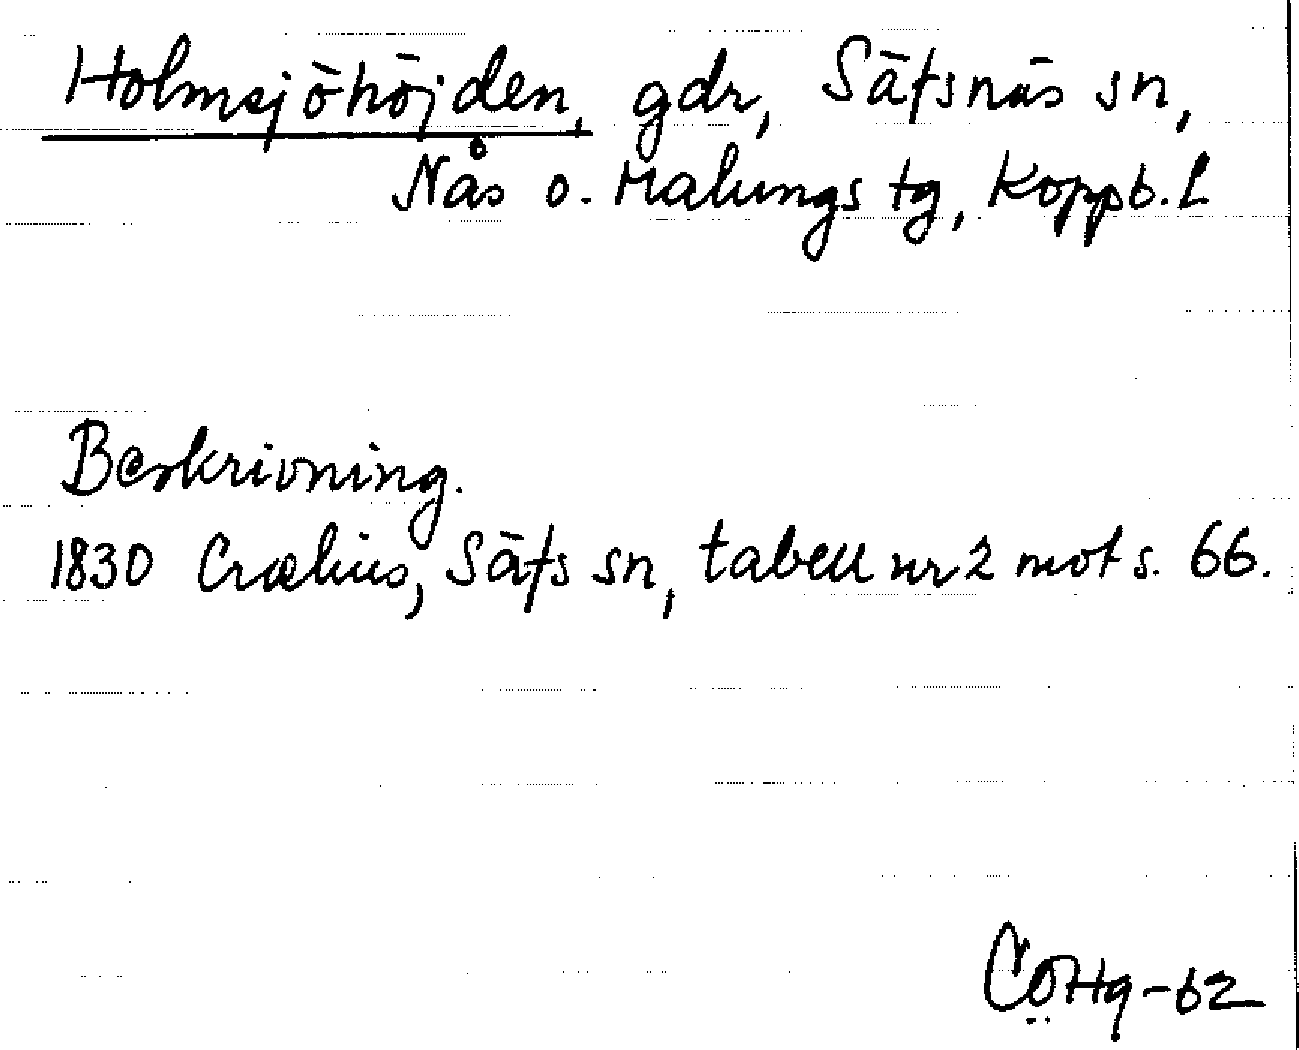 Holmsjöhöjden, gdr, Säfsnäs sn,
Nås o. Malungs tg, Koppb. L
Beskrivning.
1830 Crælius, Säfs sn, tabell nr 2 mot s. 66.
CÖHg-62